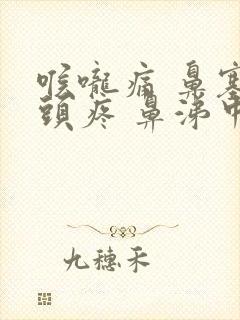 喉嚨痛 鼻塞
頭疼 鼻涕
九穗禾